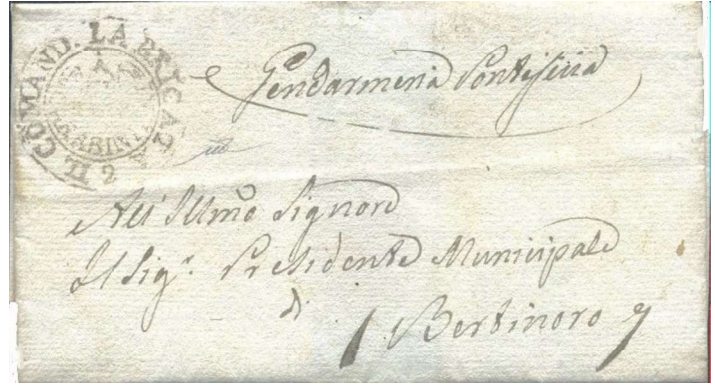 IL COMAND. LA BRIGAD
2
Gendarmeria Pontificia
All' Illmo Signore
Il Sigr. Presidente Municipale
di
Bertinoro